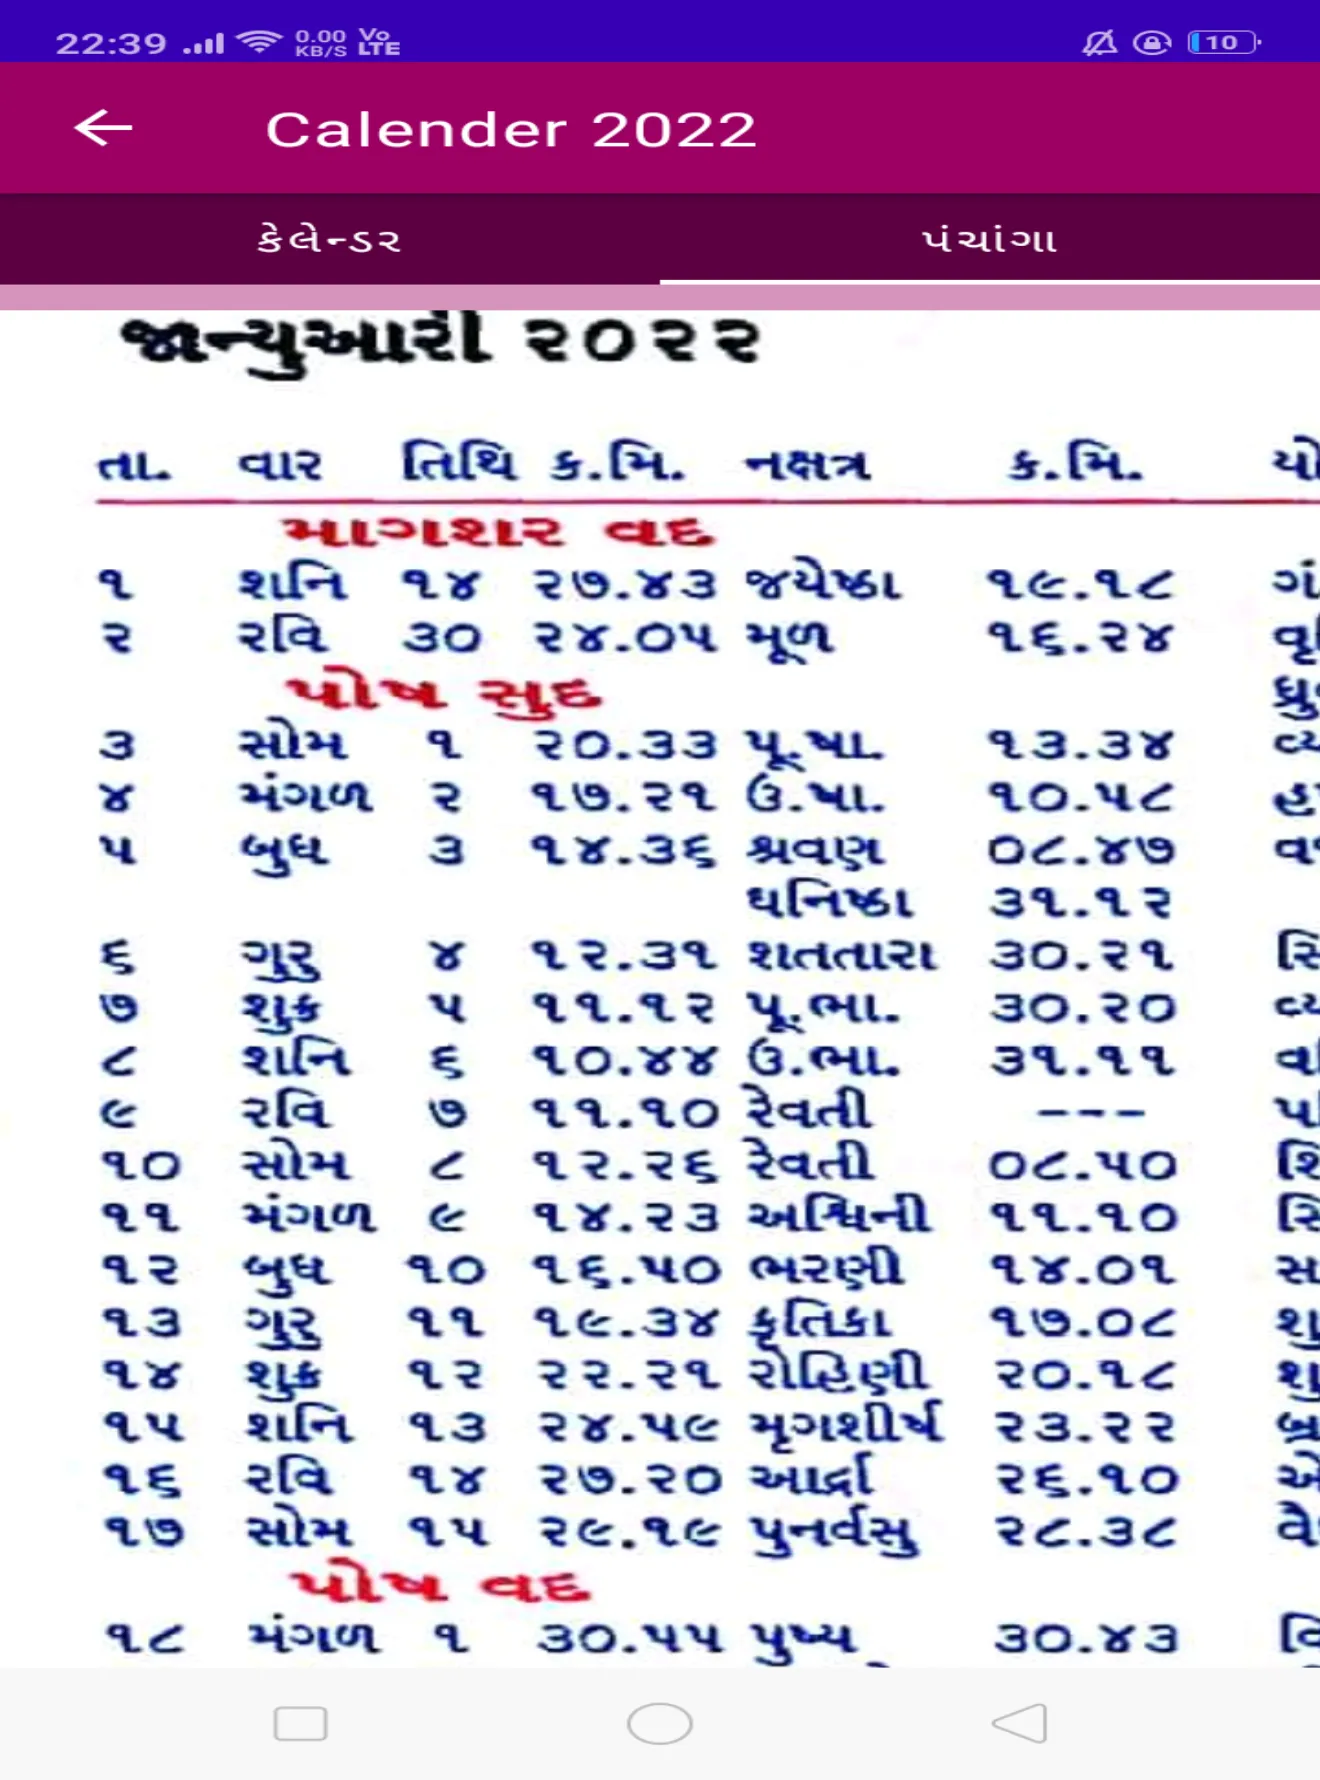 22:39 0.00 KB/S Vo LTE 10
Calender 2022
કેલેન્ડર પંચાંગા
જાન્યુઆરી ૨૦૨૨
તા. વાર તિથિ ક.મિ. નક્ષત્ર ક.મિ.
માગશર વદ
૧ શનિ ૧૪ ૨૭.૪૩ જયેષ્ઠા ૧૯.૧૮
૨ રવિ ૩૦ ૨૪.૦૫ મૂળ ૧૬.૨૪
પોષ સુદ
૩ સોમ ૧ ૨૦.૩૩ પૂ.ષા. ૧૩.૩૪
૪ મંગળ ૨ ૧૭.૨૧ ઉ.ષા. ૧૦.૫૮
૫ બુધ ૩ ૧૪.૩૬ શ્રવણ ૦૮.૪૭
ધનિષ્ઠા ૩૧.૧૨
૬ ગુરુ ૪ ૧૨.૩૧ શતતારા ૩૦.૨૧
૭ શુક્ર ૫ ૧૧.૧૨ પૂ.ભા. ૩૦.૨૦
૮ શનિ ૬ ૧૦.૪૪ ઉ.ભા. ૩૧.૧૧
૯ રવિ ૭ ૧૧.૧૦ રેવતી ---
૧૦ સોમ ૮ ૧૨.૨૬ રેવતી ૦૮.૫૦
૧૧ મંગળ ૯ ૧૪.૨૩ અશ્વિની ૧૧.૧૦
૧૨ બુધ ૧૦ ૧૬.૫૦ ભરણી ૧૪.૦૧
૧૩ ગુરુ ૧૧ ૧૯.૩૪ કૃતિકા ૧૭.૦૮
૧૪ શુક્ર ૧૨ ૨૨.૨૧ રોહિણી ૨૦.૧૮
૧૫ શનિ ૧૩ ૨૪.૫૯ મૃગશીર્ષ ૨૩.૨૨
૧૬ રવિ ૧૪ ૨૭.૨૦ આર્દ્રા ૨૬.૧૦
૧૭ સોમ ૧૫ ૨૯.૧૯ પુનર્વસુ ૨૮.૩૮
પોષ વદ
૧૮ મંગળ ૧ ૩૦.૫૫ પુષ્ય ૩૦.૪૩